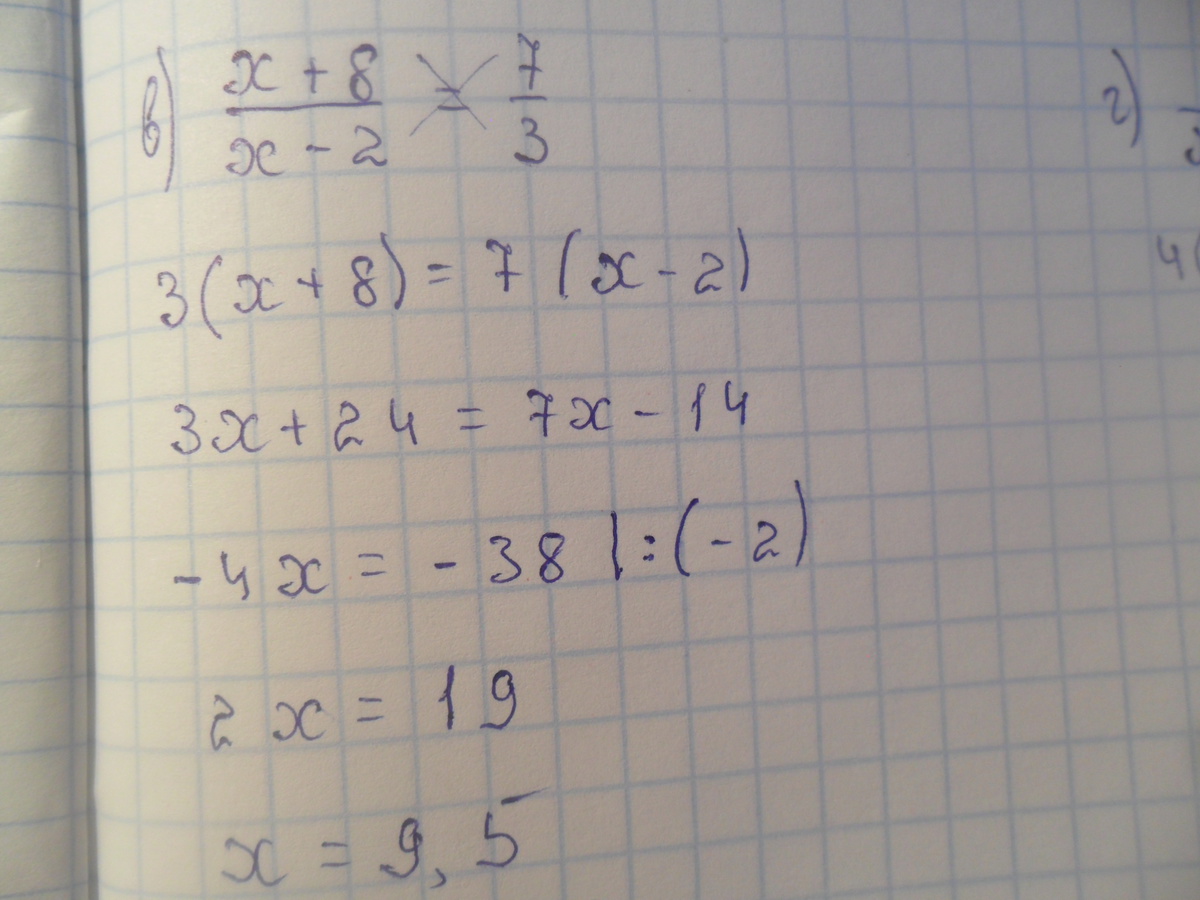 в) (x + 8)/(x - 2) = 7/3
г)
3(x + 8) = 7(x - 2)
4(
3x + 24 = 7x - 14
-4x = -38 |:(-2)
2x = 19
x = 9,5